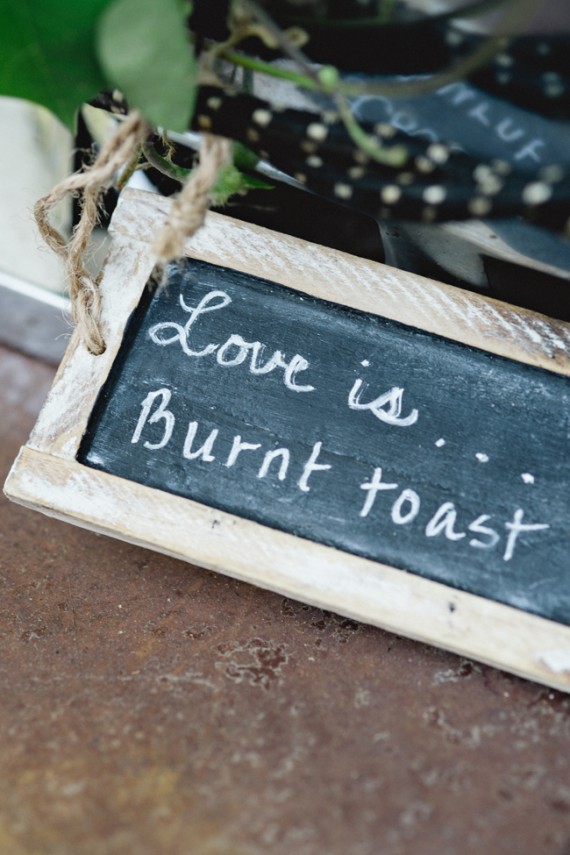 Love is...
Burnt toast